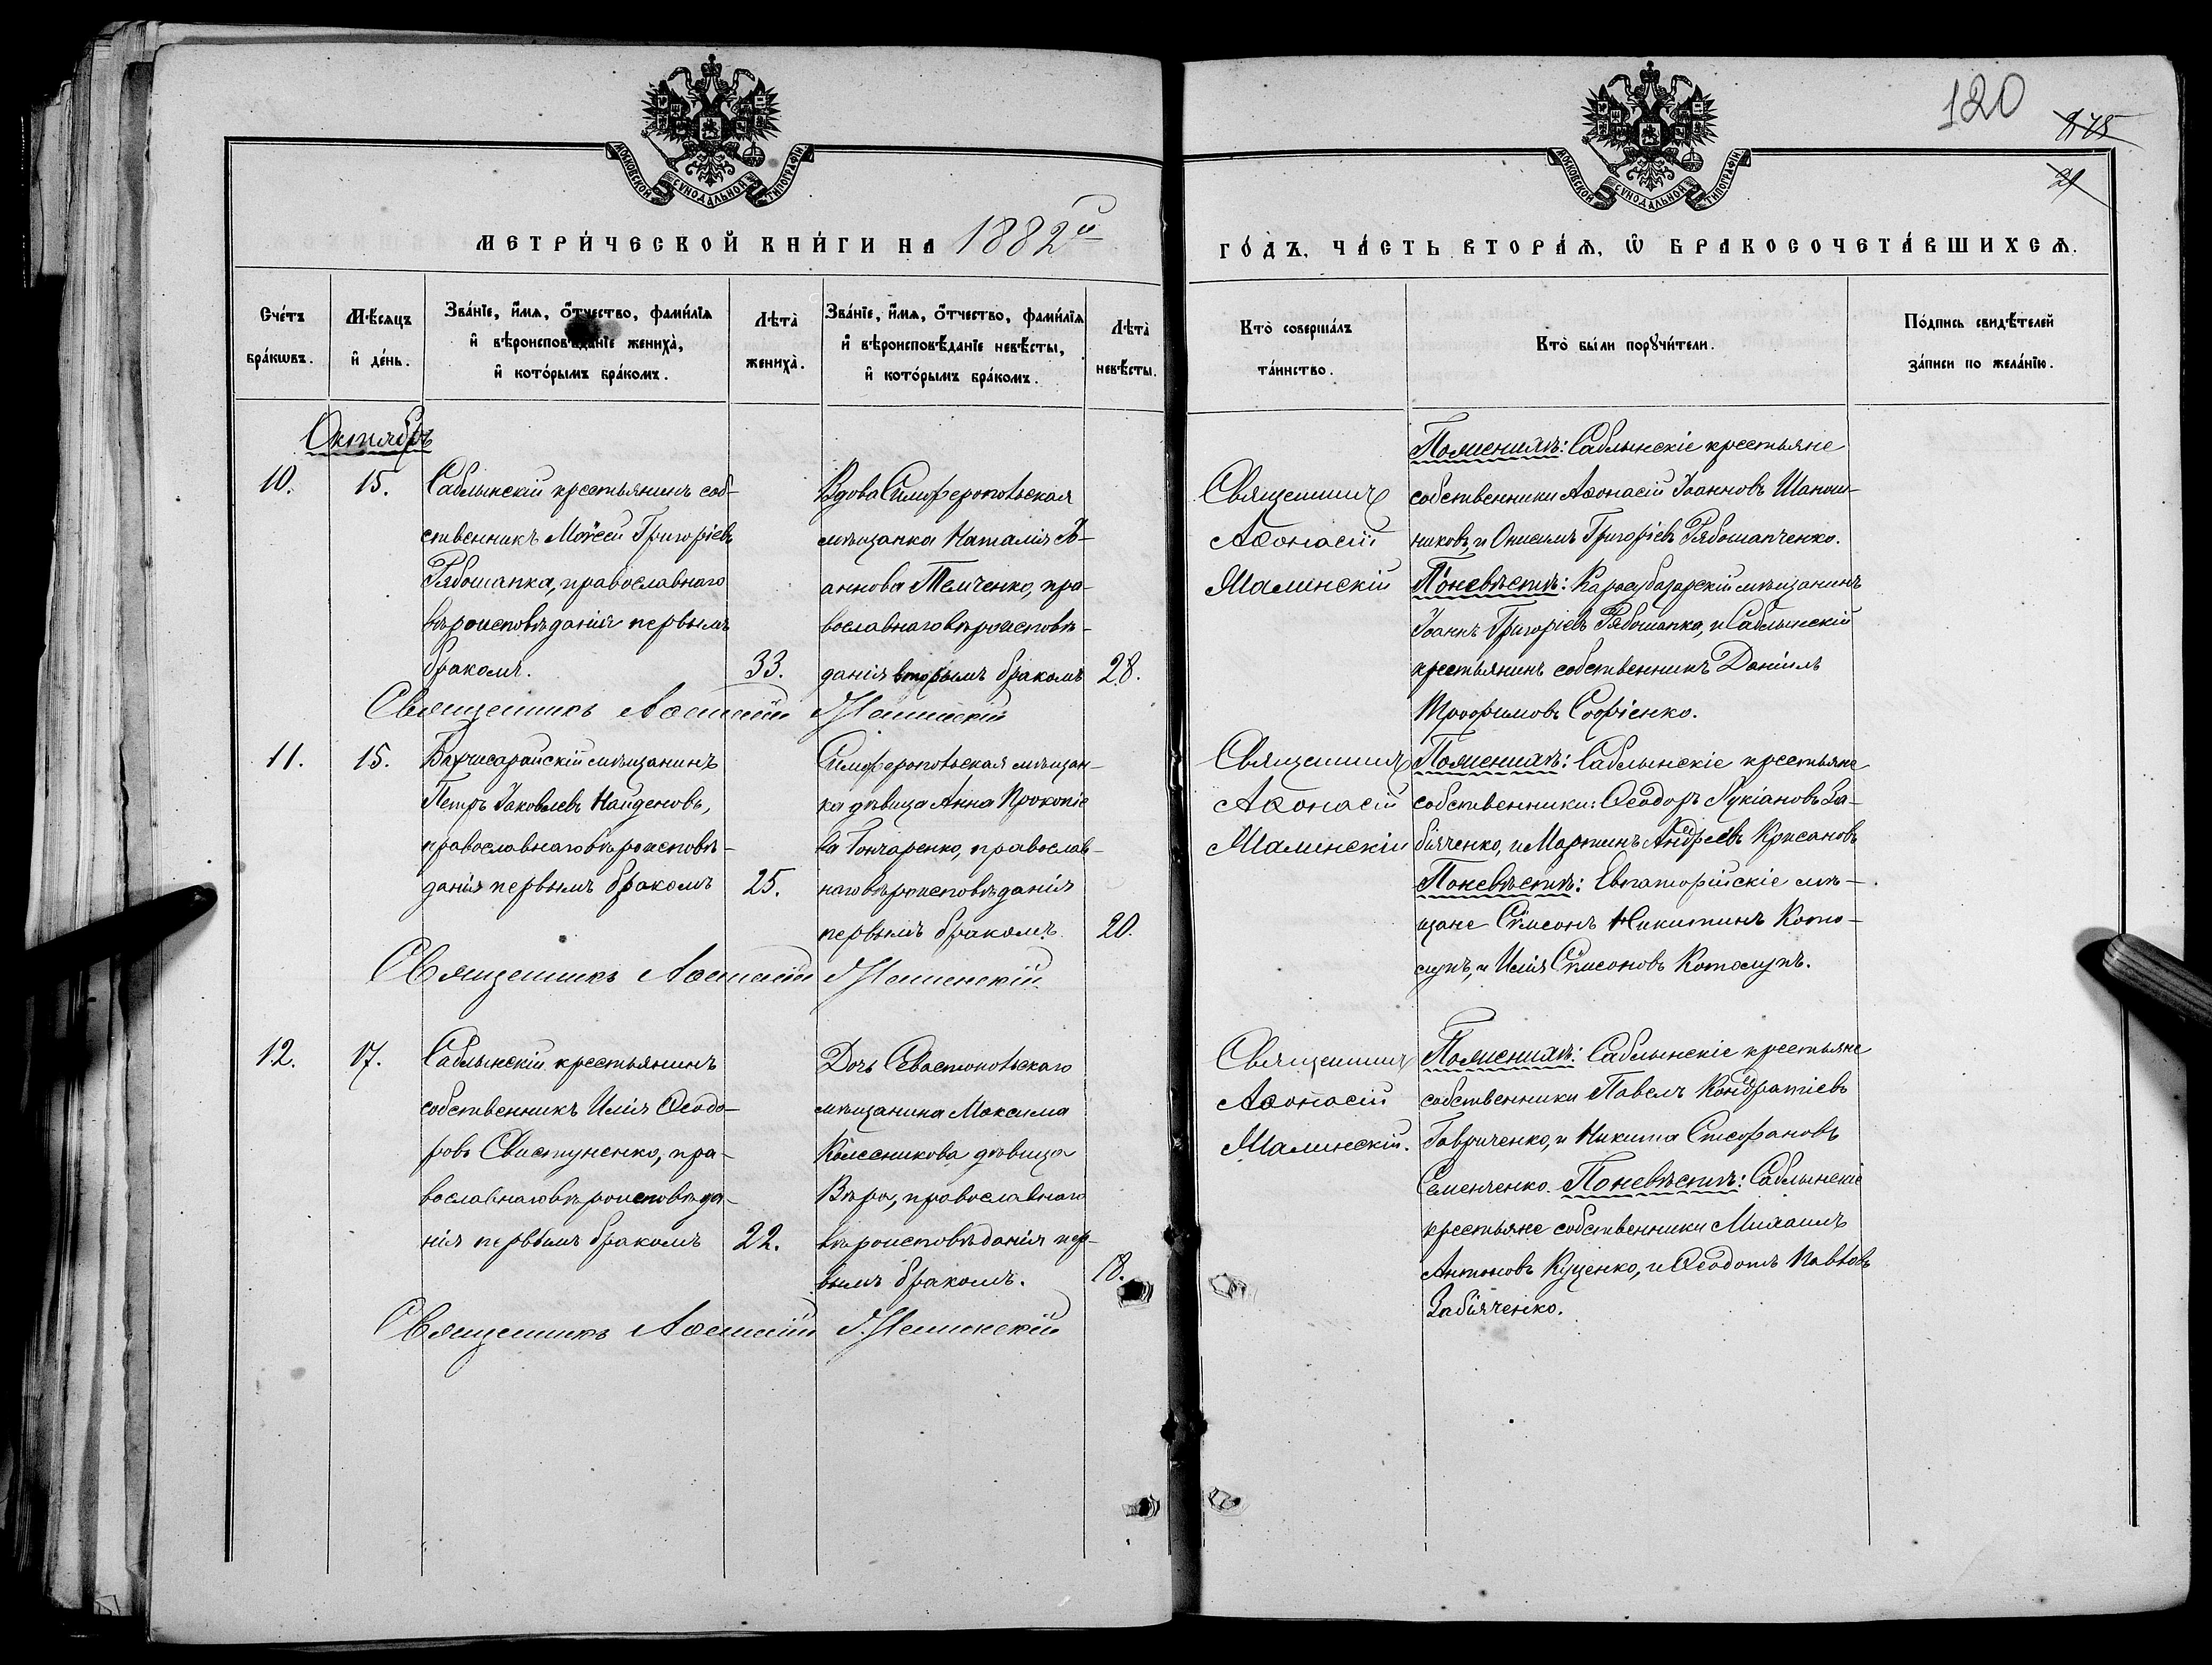 120
МОСКОВСКОЙ СѴНОДАЛЬНОЙ ТИПОГРАФІИ
МОСКОВСКОЙ СѴНОДАЛЬНОЙ ТИПОГРАФІИ
МЕТРИ́ЧЕСКОЙ КНИ́ГИ НА 1882й
ГО́ДЪ, ЧА́СТЬ ВТОРА́Ѧ, Ѡ БРАКОСОЧЕТА́ВШИХСѦ.
Сче́тъ
бра́кѡвъ.
Мѣ́сяцъ
и҆ де́нь.
Зва́нїе, и҆́мѧ, ѻ҆́тчество, фами́лїя
и҆ вѣроисповѣ́данїе жениха̀,
и҆ кото́рымъ бра́комъ.
Лѣта̀
жениха̀.
Зва́нїе, и҆́мѧ, ѻ҆́тчество, фами́лїя
и҆ вѣроисповѣ́данїе невѣ́сты,
и҆ кото́рымъ бра́комъ.
Лѣта̀
невѣ́сты.
Кто̀ соверша́лъ
та́инство.
Кто̀ бы́ли порꙋчи́тели.
По́дпись свидѣ́телей
за́писи по жела́нїю.
Октябрь
10.
15.
Саблынскій крестьянинъ соб-
ственникъ Моѵсей Григоріевъ
Рябошапка, православнаго
вѣроисповѣданія первымъ
бракомъ.
33.
Вдова Симферопольская
мѣщанка Наталія Іо-
аннова Темченко, пра-
вославнаго вѣроисповѣ-
данія вторымъ бракомъ
28.
Священникъ
Аѳонасій
Малинскій
По женихѣ: Саблынскіе крестьяне
собственники Аѳонасій Іоанновъ Шапош-
никовъ, и Онисимъ Григоріевъ Рябошапченко.
По невѣстѣ: Карасубазарскій мѣщанинъ
Іоаннъ Григоріевъ Рябошапка, и Саблынскій
крестьянинъ собственникъ Даніилъ
Трофимовъ Софіенко.
Священникъ Аѳонасій Малинскій
11.
15.
Бахчисарайскій мѣщанинъ
Петръ Іаковлевъ Найденовъ,
православнаго вѣроисповѣ-
данія первымъ бракомъ
25.
Симферопольская мѣщан-
ка дѣвица Анна Прокопіе
ва Гончаренко, православ-
наго вѣроисповѣданія
первымъ бракомъ.
20.
Священникъ
Аѳонасій
Малинскій
По женихѣ: Саблынскіе крестьяне
собственники: Ѳеодоръ Лукіановъ За-
біяченко, и Мартинъ Андреевъ Крисановъ
По невѣстѣ: Евпаторійскіе мѣ-
щане Сѵмеонъ Никитинъ Кото-
лупъ, и Илія Сѵмеоновъ Котолупъ.
Священникъ Аѳонасій Малинскій
12.
17.
Саблынскій крестьянинъ
собственникъ Илія Ѳеодо-
ровъ Свистуненко, пра-
вославнаго вѣроисповѣда-
нія первымъ бракомъ
22.
Дочь Севастопольскаго
мѣщанина Максима
Колесникова дѣвица
Вѣра, православнаго
вѣроисповѣданія пер-
вымъ бракомъ.
18.
Священникъ
Аѳонасій
Малинскій.
По женихѣ: Саблынскіе крестьяне
собственники Павелъ Кондратіевъ
Гавриченко, и Никита Стефановъ
Семенченко. По невѣстѣ: Саблынскіе
крестьяне собственники Михаилъ
Антоновъ Куценко, и Ѳеодотъ Павловъ
Забіяченко.
Священникъ Аѳонасій Малинскій